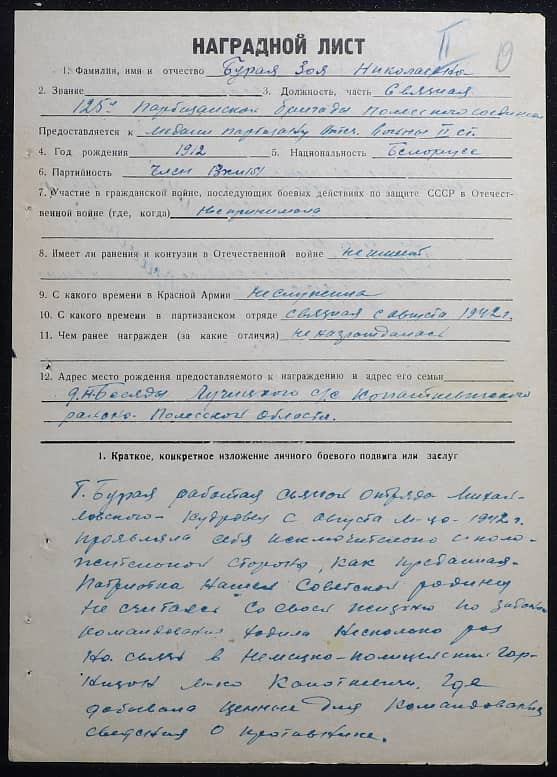 II 19
НАГРАДНОЙ ЛИСТ
1. Фамилия, имя и отчество Бурая Зоя Николаевна
2. Звание 3. Должность, часть Связная
125й Партизанской бригады Полесского соединения
Представляется к медали партизану Отеч. войны II ст.
4. Год рождения 1912 5. Национальность Белорусс
6. Партийность Член ВЛКСМ
7. Участие в гражданской войне, последующих боевых действиях по защите СССР в Отечест-
венной войне (где, когда) Не принимала
8. Имеет ли ранения и контузии в Отечественной войне не имеет
9. С какого времени в Красной Армии не служила
10. С какого времени в партизанском отряде связная с августа 1942 г.
11. Чем ранее награжден (за какие отличия) не награждалась
12. Адрес место рождения предоставляемого к награждению и адрес его семьи
д. Н-Беседы Лучицкого с/с Копаткевичского
района Полесской области.
1. Краткое, конкретное изложение личного боевого подвига или заслуг
Т. Бурая работая связной отряда Михай-
ловского Кудравец с августа м-ца 1942 г.
проявляла себя исключительно с поло-
жительной стороны, как преданная
Патриотка нашей Советской родины
Не считаясь со своей жизнью по заданию
командования ходила несколько раз
на связь в Немецко-полицейский гар-
низон м-ко Копаткевичи. Где
добывала ценные для командования
сведения о противнике.